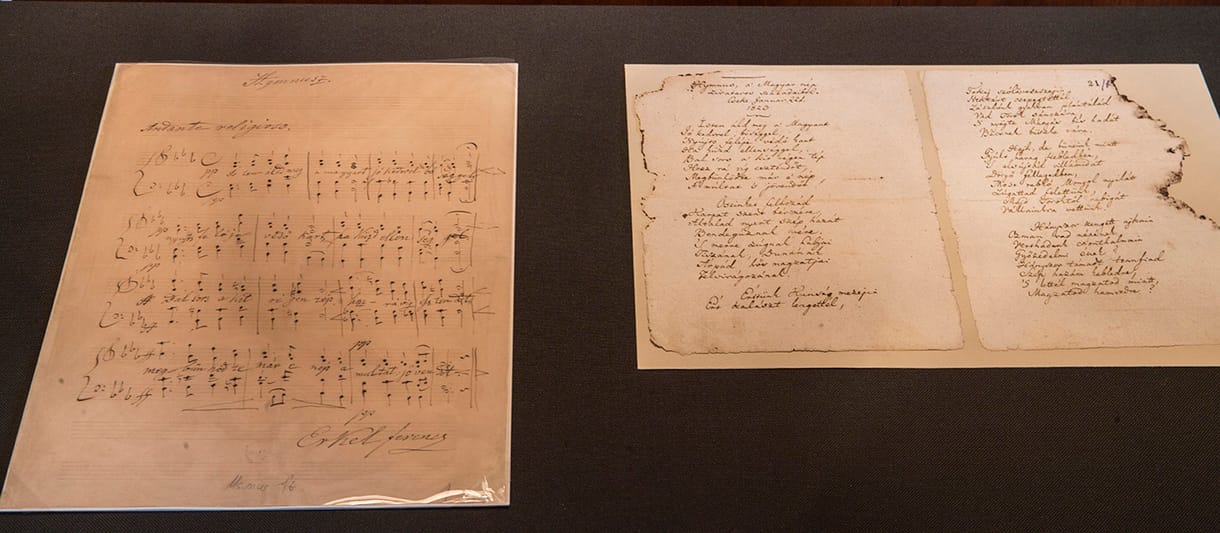 Hymnusz.
Andante religioso.
pp Is ten áld meg a magyart jó kedvvel bő seggel
nyujts fe léje védő kart ha küzd ellen ség gel
Bal sors a kit régen tép hoz rá víg esz ten dőt
meg bűn hőd te már e nép a multat jö ven dőt
ppp
Erkel Ferencz
Hymnus, a' Magyar nép
zivataros századaiból.
Cseke Januar. 22d.
1823
Isten áldd meg a' Magyart
Jó kedvvel, bőséggel,
Nyújts feléje védő kart
Ha küzd ellenséggel;
Bal sors a' kit régen tép
Hozz rá víg esztendőt,
Megbünhödte már e' nép
A' múltat 's jövendőt.
Őseinket felhozád
Kárpát szent bérczére,
Általad nyert szép hazát
Bendegúznak vére.
'S merre zúgnak habjai
Tiszának, Dunának
Árpád hős magzatjai
Felvirágozának.
Értünk Kunság mezejin
Ért kalászt lengettél,
21/
Tokaj szőlővesszejin
Nektárt csepegtettél.
Zászlónk gyakran plántálád
Vad török sánczára,
'S nyögte Mátyás bús hadát
Bécsnek büszke vára.
Hajh, de bűneink miatt
Gyúlt harag kebledben,
'S elsújtád villámidat
Dörgő fellegedben,
Most rabló Mongol nyilát
Zúgattad felettünk,
Majd töröktől rabigát
Vállainkra vettünk.
Hányszor zengett ajkain
Ozman vad népének
Vert hadunk csonthalmain
Győzedelmi ének!
Hányszor támadt tenfiad
Szép hazám kebledre,
'S lettél magzatod miatt
Magzatod hamvedre?